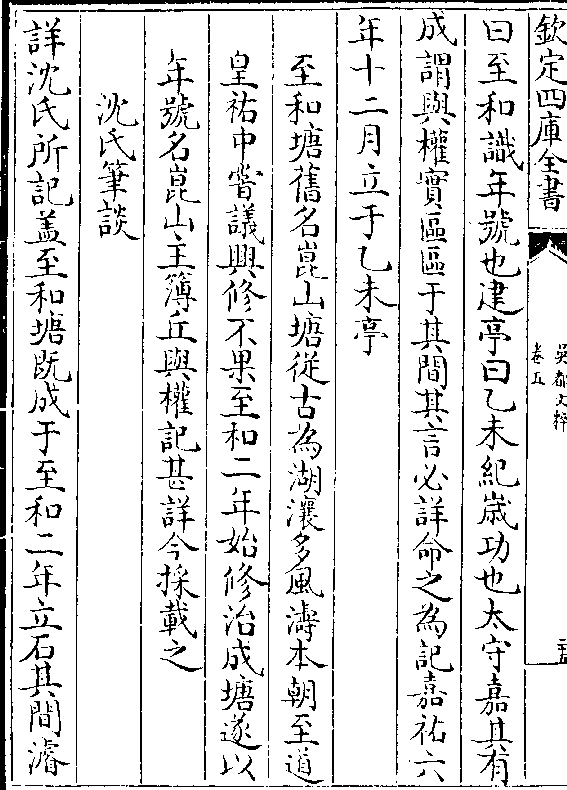 欽定四庫全書
吳都文粹
卷五
曰至和識年號也建亭曰乙未紀歲功也太守嘉其有
成謂與權實區區于其間其言必詳命之為記嘉祐六
年十二月立于乙未亭
至和塘舊名崑山塘從古為湖瀼多風濤本朝至道
皇祐中嘗議興修不果至和二年始修治成塘遂以
年號名崑山主簿丘與權記甚詳今採載之
沈氏筆談
詳沈氏所記盖至和塘既成于至和二年立石其間濬